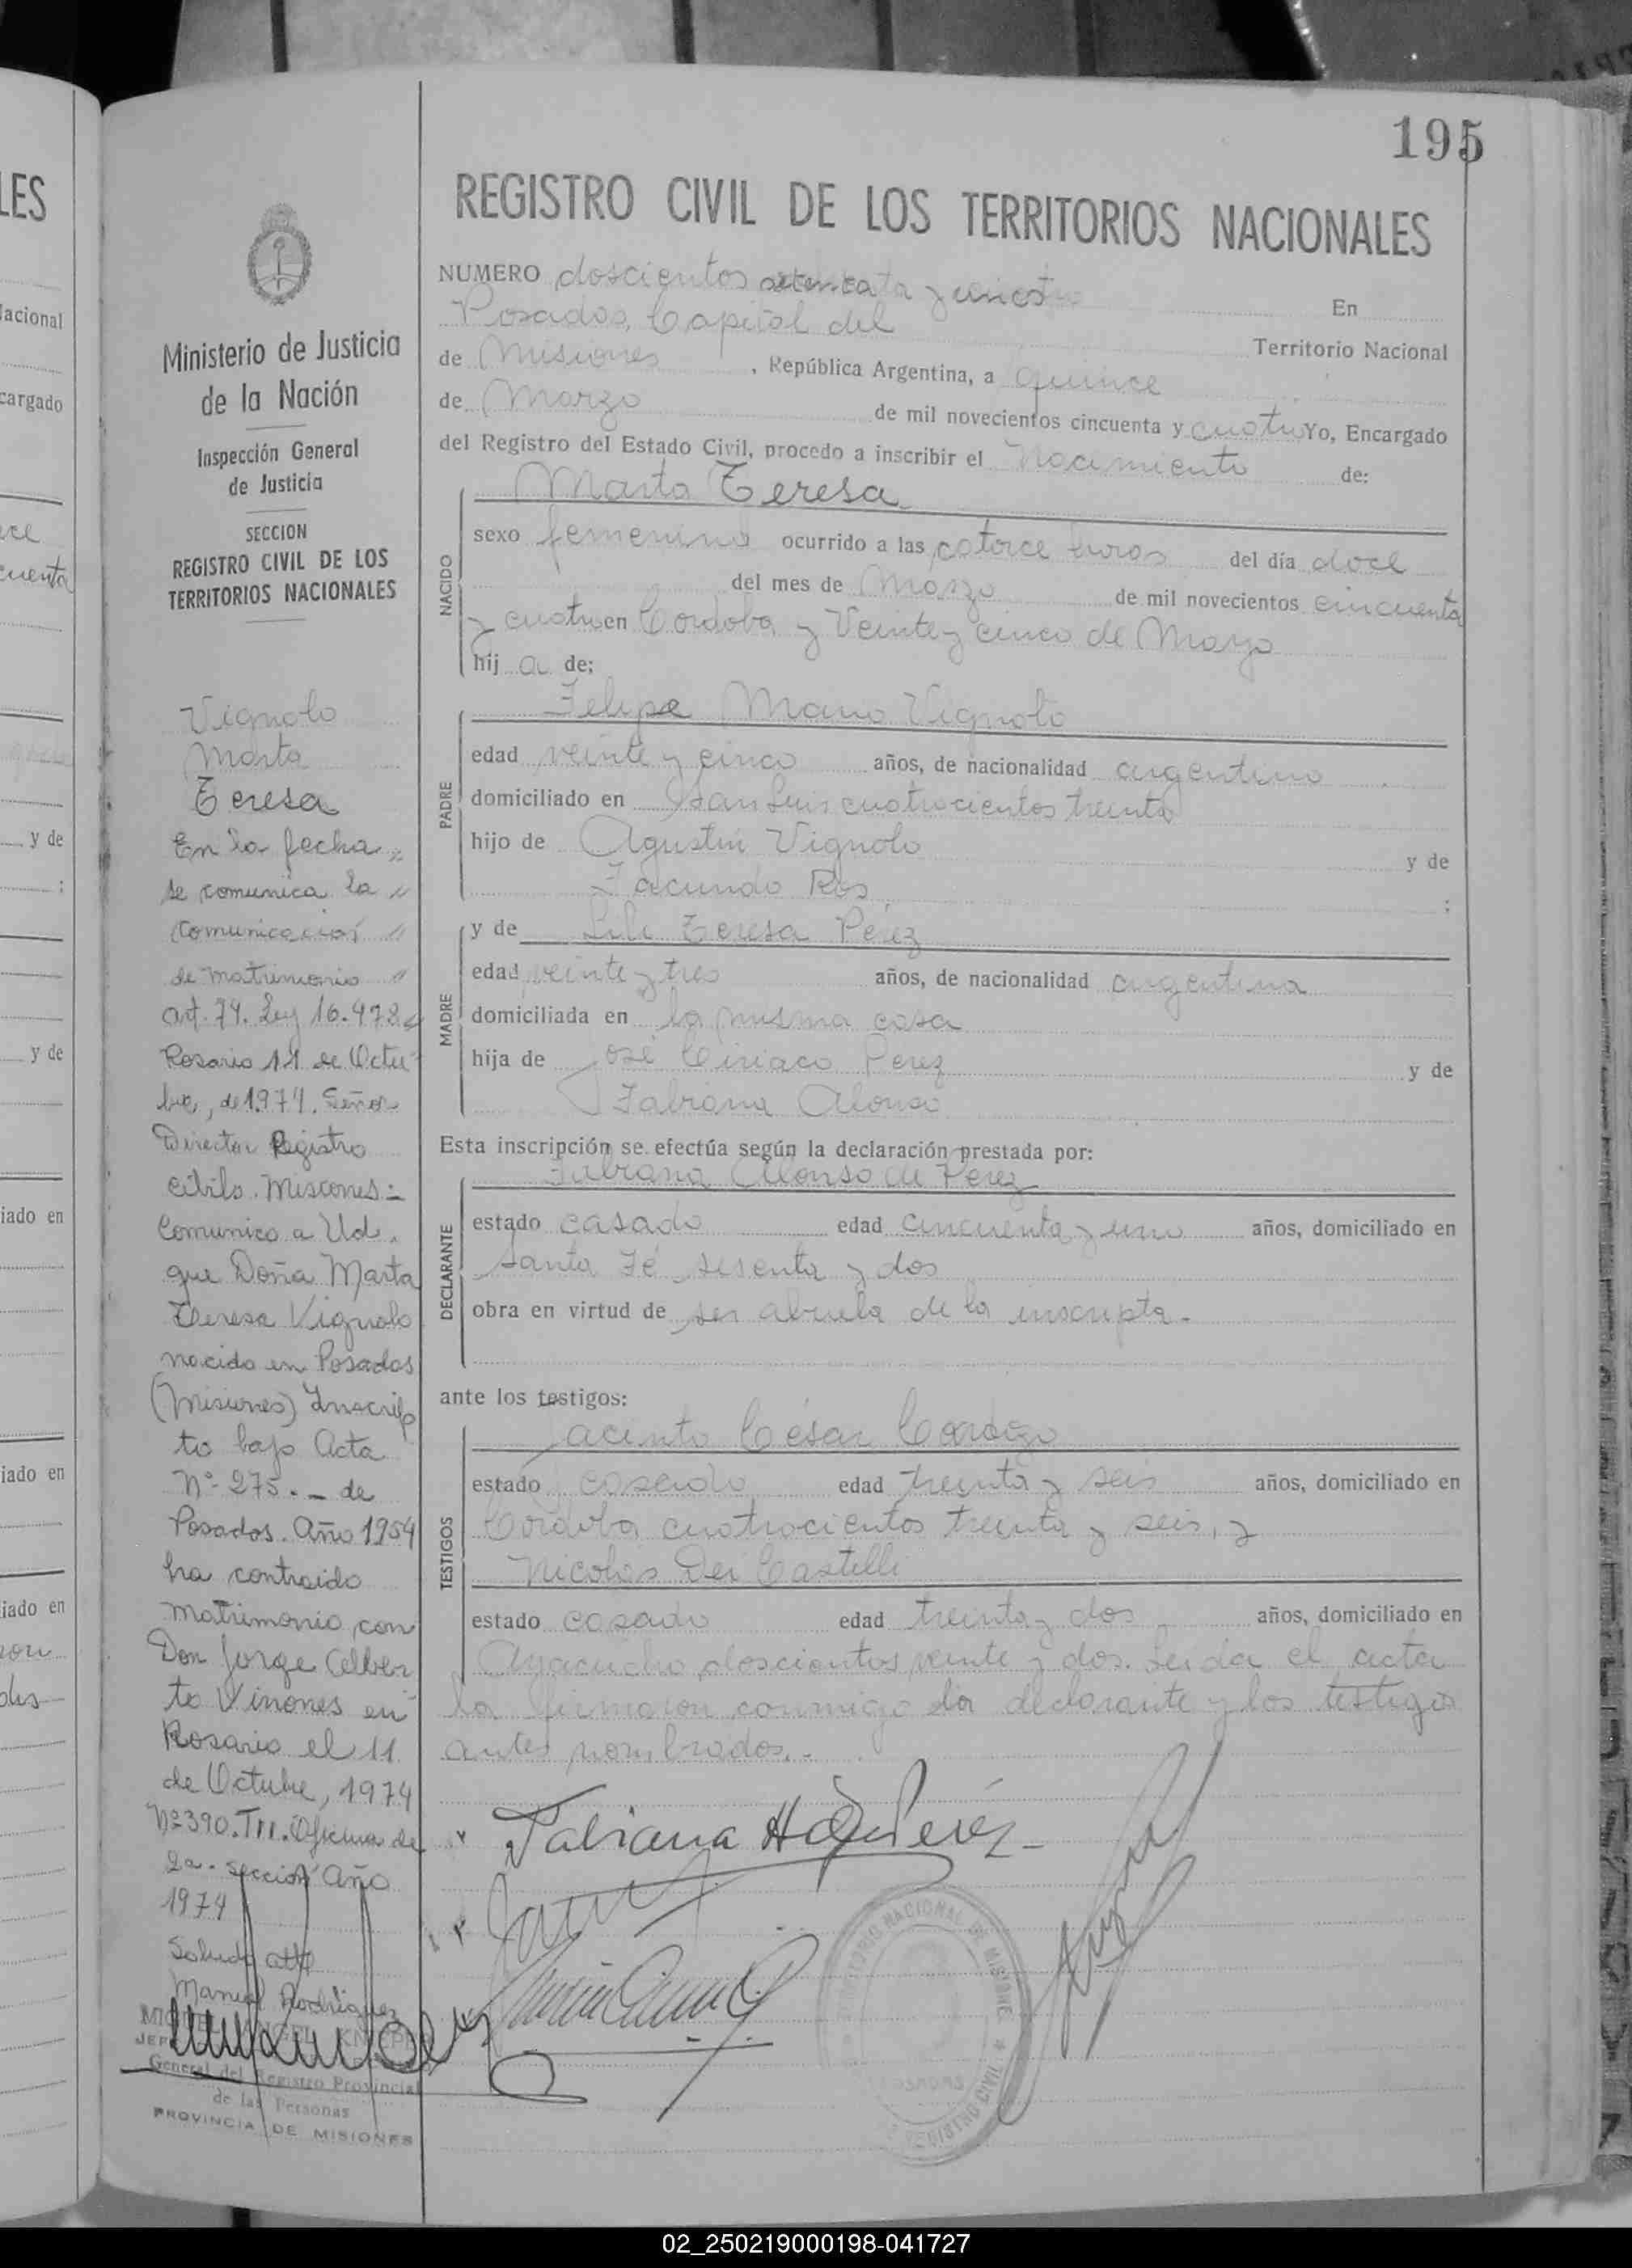 195
REGISTRO CIVIL DE LOS TERRITORIOS NACIONALES
Ministerio de Justicia
de la Nación
Inspección General
de Justicia
SECCION
REGISTRO CIVIL DE LOS
TERRITORIOS NACIONALES
Vignolo
Marta
Teresa
En la fecha
se comunica la
comunicación
de matrimonio
art. 74. Ley 16.478
Rosario 11 de Octu
bre, de 1974. Señor
Director Registro
Misiones
Comunico a Ud.
que Doña Marta
Teresa Vignolo
nacida en Posadas
(Misiones) Inscrip
ta bajo Acta
Nº 275.- de
Posadas. Año 1954
ha contraido
matrimonio con
Don Jorge Alber
to Vinones en
Rosario el 11
de Octubre, 1974
Nº 390. TII. Oficina de
2a. sección Año
1974
Saludo atte
Manuel Rodriguez
General del Registro Provincial
de las Personas
PROVINCIA DE MISIONES
NUMERO doscientos En
Posadas, Capital del Territorio Nacional
de Misiones, República Argentina, a quince
de Marzo de mil novecientos cincuenta y cuatro Yo, Encargado
del Registro del Estado Civil, procedo a inscribir el Nacimiento de:
Marta Teresa
NACIDO
sexo femenino ocurrido a las catorce horas del día doce
del mes de Marzo de mil novecientos cincuenta
y cuatro en Cordoba y Veinte y cinco de Mayo
hij a de:
Felipe Mario Vignolo
PADRE
edad veinte y cinco años, de nacionalidad argentino
domiciliado en San Luis cuatrocientos treinta
hijo de Agustin Vignolo y de
Facundo Ros ;
MADRE
y de Lili Teresa Pérez
edad veinte y tres años, de nacionalidad argentina
domiciliada en la misma casa
hija de José Ciriaco Perez y de
Fabiana Alonso
Esta inscripción se efectúa según la declaración prestada por:
Fabiana Alonso de Perez
DECLARANTE
estado casada edad cincuenta y uno años, domiciliado en
Santa Fé sesenta y dos
obra en virtud de ser abuela de la inscripta.
ante los testigos:
Jacinto César Cardozo
TESTIGOS
estado casado edad treinta y seis años, domiciliado en
Cordoba cuatrocientos treinta y seis, y
Nicolas Dei Castelli
estado casado edad treinta y dos años, domiciliado en
Ayacucho doscientos veinte y dos. Leida el acta
la firmaron conmigo la declarante y los testigos
antes nombrados.-
Fabiana
TERRITORIO NACIONAL DE MISIONES
REGISTRO CIVIL
LES
Nacional
cargado
cuenta
y de
y de
iado en
iado en
iado en
02_250219000198-041727